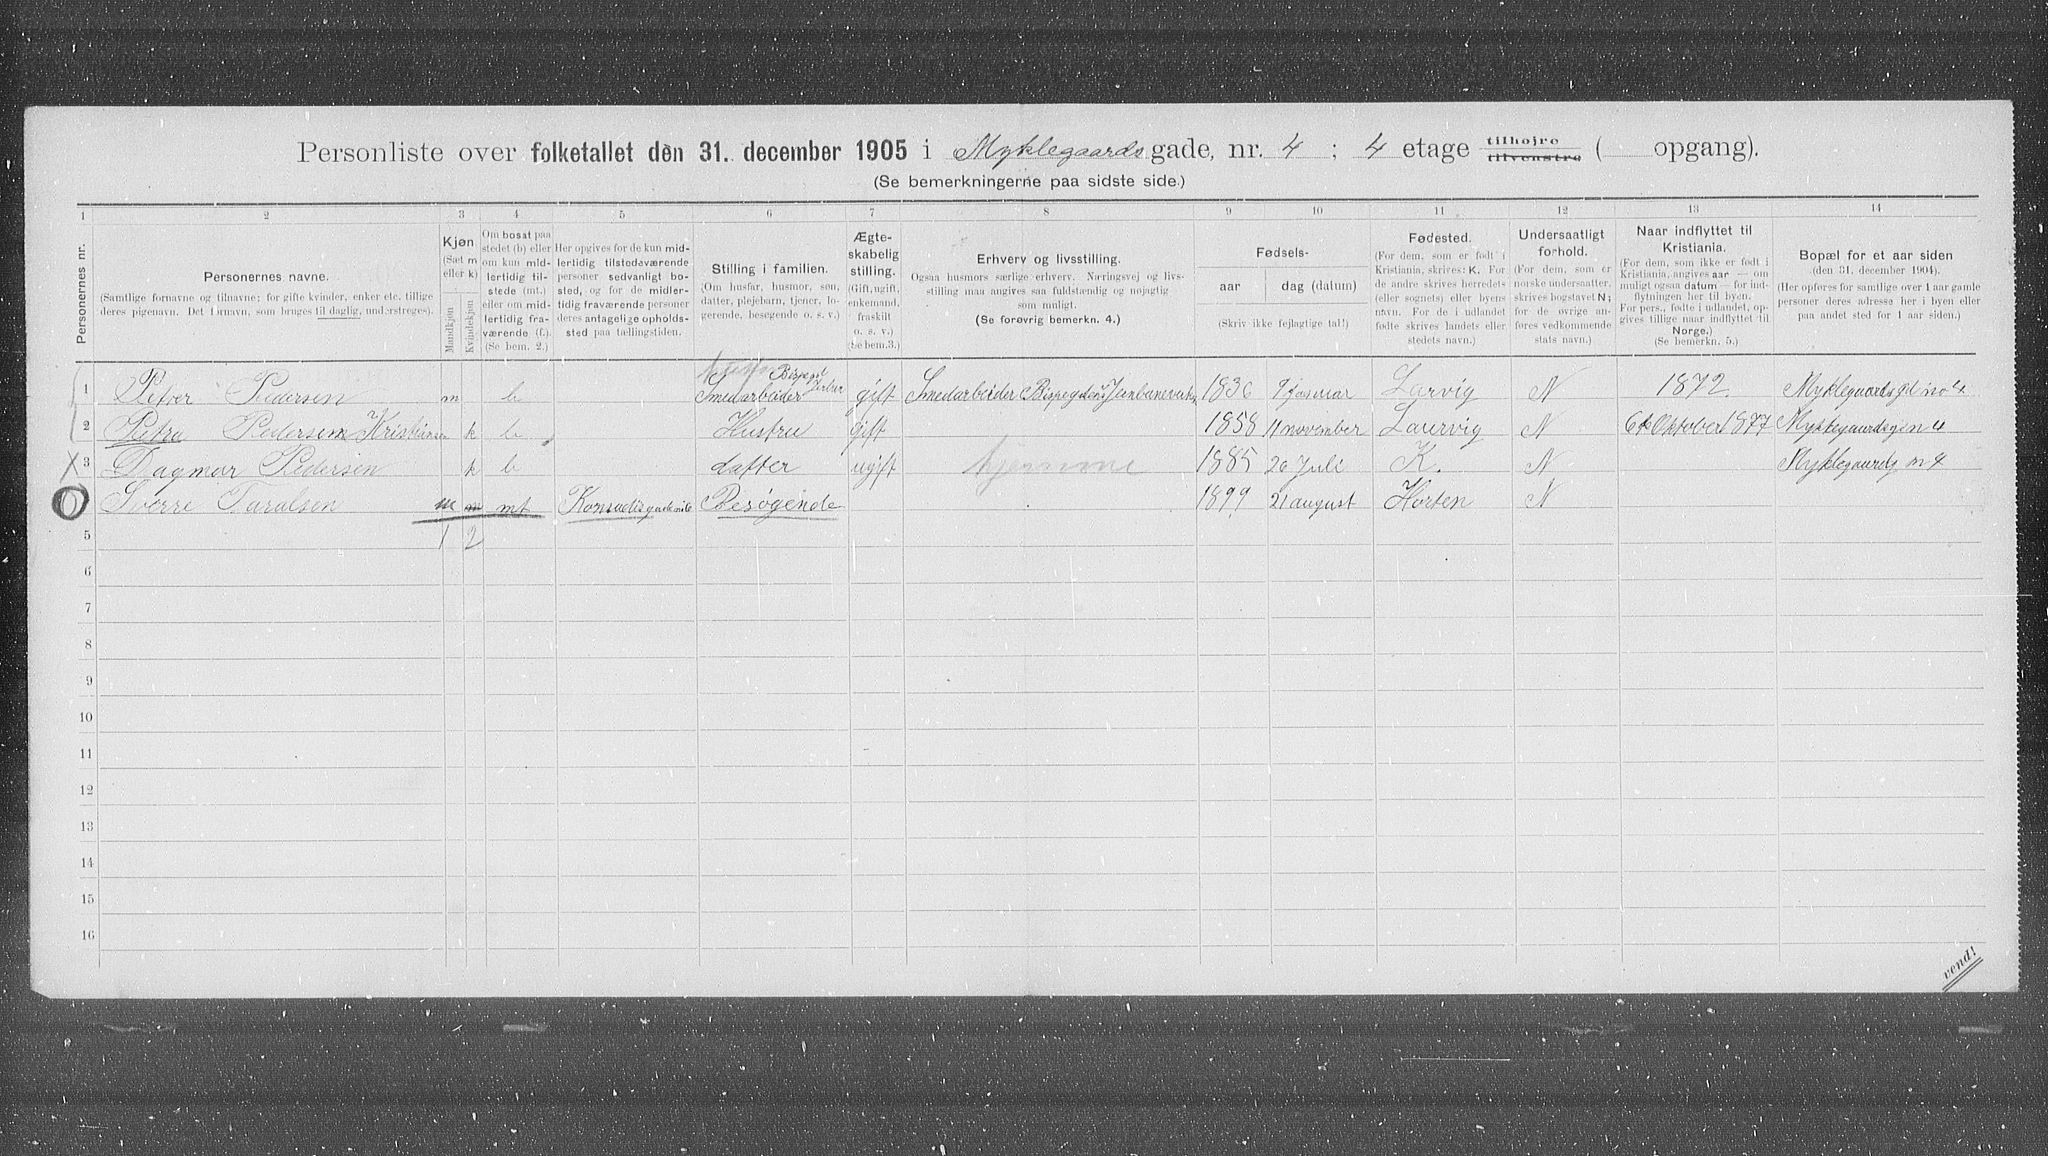 Personliste over folketallet den 31. december 1905 i Myklegaards gade, nr. 4 ; 4 etage tilhøjre tilvenstre ( opgang).
(Se bemerkningerne paa sidste side.)
1 2 3 4 5 6 7 8 9 10 11 12 13 14
Personernes nr.
Personernes navne.
(Samtlige fornavne og tilnavne; for gifte kvinder, enker etc. tillige
deres pigenavn. Det fornavn, som bruges til daglig, understreges).
Kjøn
(Sæt m
eller k)
Mandkjøn
Kvindekjøn
Om bosat paa
stedet (b) eller
om kun mid-
lertidig til-
stede (mt.)
eller om mid-
lertidig fra-
værende (f.).
(Se bem. 2.)
Her opgives for de kun mid-
lertidig tilstedeværende
personer sedvanligt bo-
sted, og for de midler-
tidig fraværende personer
deres antagelige opholds-
sted paa tællingstiden.
Stilling i familien.
(Om husfar, husmor, søn,
datter, plejebarn, tjener, lo-
gerende, besøgende o. s. v.)
Ægte-
skabelig
stilling.
(Gift, ugift,
enkemand,
fraskilt
o. s. v.)
(Se bem.3.)
Erhverv og livsstilling.
Ogsaa husmors særlige erhverv. Næringsvej og livs-
stilling maa angives saa fuldstændig og nøjagtig
som muligt.
(Se forøvrig bemerkn. 4.)
Fødsels-
aar dag (datum)
(Skriv ikke fejlagtige tal!)
Fødested.
(For dem, som er født i
Kristiania, skrives: K. For
de andre skrives herredets
(eller sognets) eller byens
navn. For de i udlandet
fødte skrives landets eller
stedets navn.)
Undersaatligt
forhold.
(For dem, som er
norske undersaatter,
skrives bogstavet N;
for de øvrige an-
føres vedkommende
stats navn.)
Naar indflyttet til
Kristiania.
(For dem, som ikke er født i
Kristiania, angives aar — om
muligt ogsaa datum — for ind-
flytningen her til byen.
For pers., fødte i udlandet, op-
gives tillige naar indflyttet til
Norge.)
(Se bemerkn. 5.)
Bopæl for et aar siden
(den 31. december 1904).
(Her opføres for samtlige over 1 aar gamle
personer deres adresse her i byen eller
paa andet sted for 1 aar siden.)
1 Petter Pedersen m b Smedarbeider gift Smedarbeider 1836 9 januar Larvig N 1872. Myklegaards gd no 4
2 Petra Pedersen Kristiansen k b Hustru gift 1858 11 november Laurvig N 6te Oktober 1877 Myklegaardsgen 4
3 Dagmar Pedersen k b datter ugift hjemme 1885 20 Juli K. N Myklegaardg n 4
Sverre Taralsen m m mt Besøgende 1899 21 august Horten N
5 1 2
6
7
8
9
10
11
12
13
14
15
16
vend!